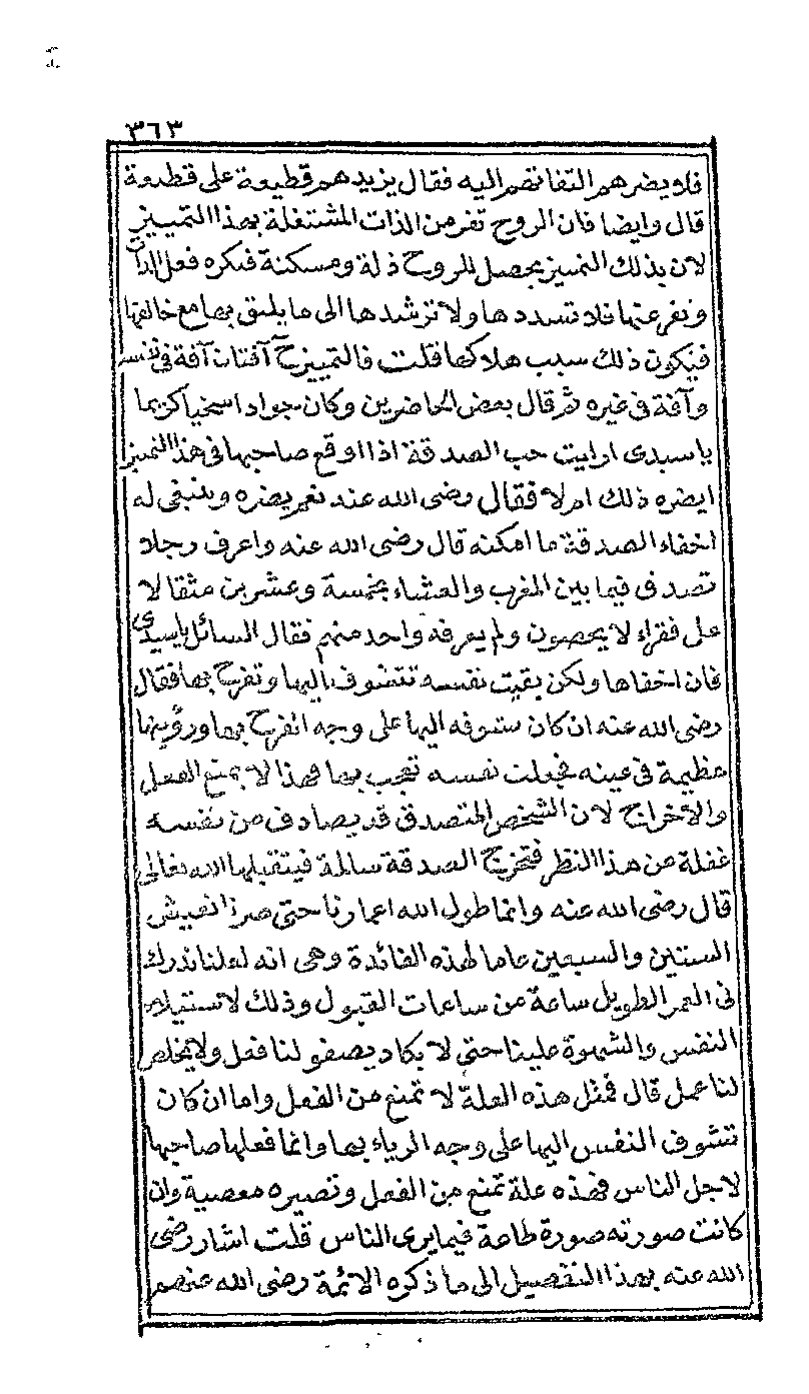 ٣٦٣
فلا يضرهم التفاتهم اليه فقال يزيدهم قطيعة على قطيعة
قال وايضا فان الروح تفر من الذات المشتغلة بهذا التمييز
لان بذلك التمييز يحصل للروح ذلة ومسكنة فتكره فعل الذات
وتفر عنها فلا تسددها ولا ترشدها الى ما يليق بها مع خالقها
فيكون ذلك سبب هلاكها قلت فالتمييز ح آفتان آفة في نفسه
وآفة في غيره ثم قال بعض الحاضرين وكان جوادا سخيا كريما
يا سيدى ارايت حب الصدقة اذا اوقع صاحبها في هذا التمييز
ايضره ذلك ام لا فقال رضى الله عنه نعم يضره وينبغى له
اخفاء الصدقة ما امكنه قال رضى الله عنه واعرف رجلا
تصدق فيما بين المغرب والعشاء بخمسة وعشرين مثقالا
على فقراء لا يحصون ولم يعرفه واحد منهم فقال السائل يا سيدى
فان اخفاها ولكن بقيت نفسه تتشوف اليها وتفرح بها فقال
رضى الله عنه ان كان تشوفه اليها على وجه الفرح بها ورؤيتها
عظيمة في عينه فجعلت نفسه تعجب بها فهذا لا يمنع الفعل
والاخراج لان الشخص المتصدق قد يصادف من نفسه
غفلة عن هذا النظر فتخرج الصدقة سالمة فيتقبلها الله تعالى
قال رضى الله عنه وانما طول الله اعمارنا حتى صرنا نعيش
الستين والسبعين عاما لهذه الفائدة وهى انه لعلنا ندرك
فى العمر الطويل ساعة من ساعات القبول وذلك لاستيلاء
النفس والشهوة علينا حتى لا يكاد يصفو لنا فعل ولا يخلص
لنا عمل قال فمثل هذه العلة لا تمنع من الفعل واما ان كان
تتشوف النفس اليها على وجه الرياء بها وانما فعلها صاحبها
لاجل الناس فهذه علة تمنع من الفعل وتصيره معصية وان
كانت صورته صورة طاعة فيما يرى الناس قلت اشار رضى
الله عنه بهذا التفصيل الى ما ذكره الائمة رضى الله عنهم